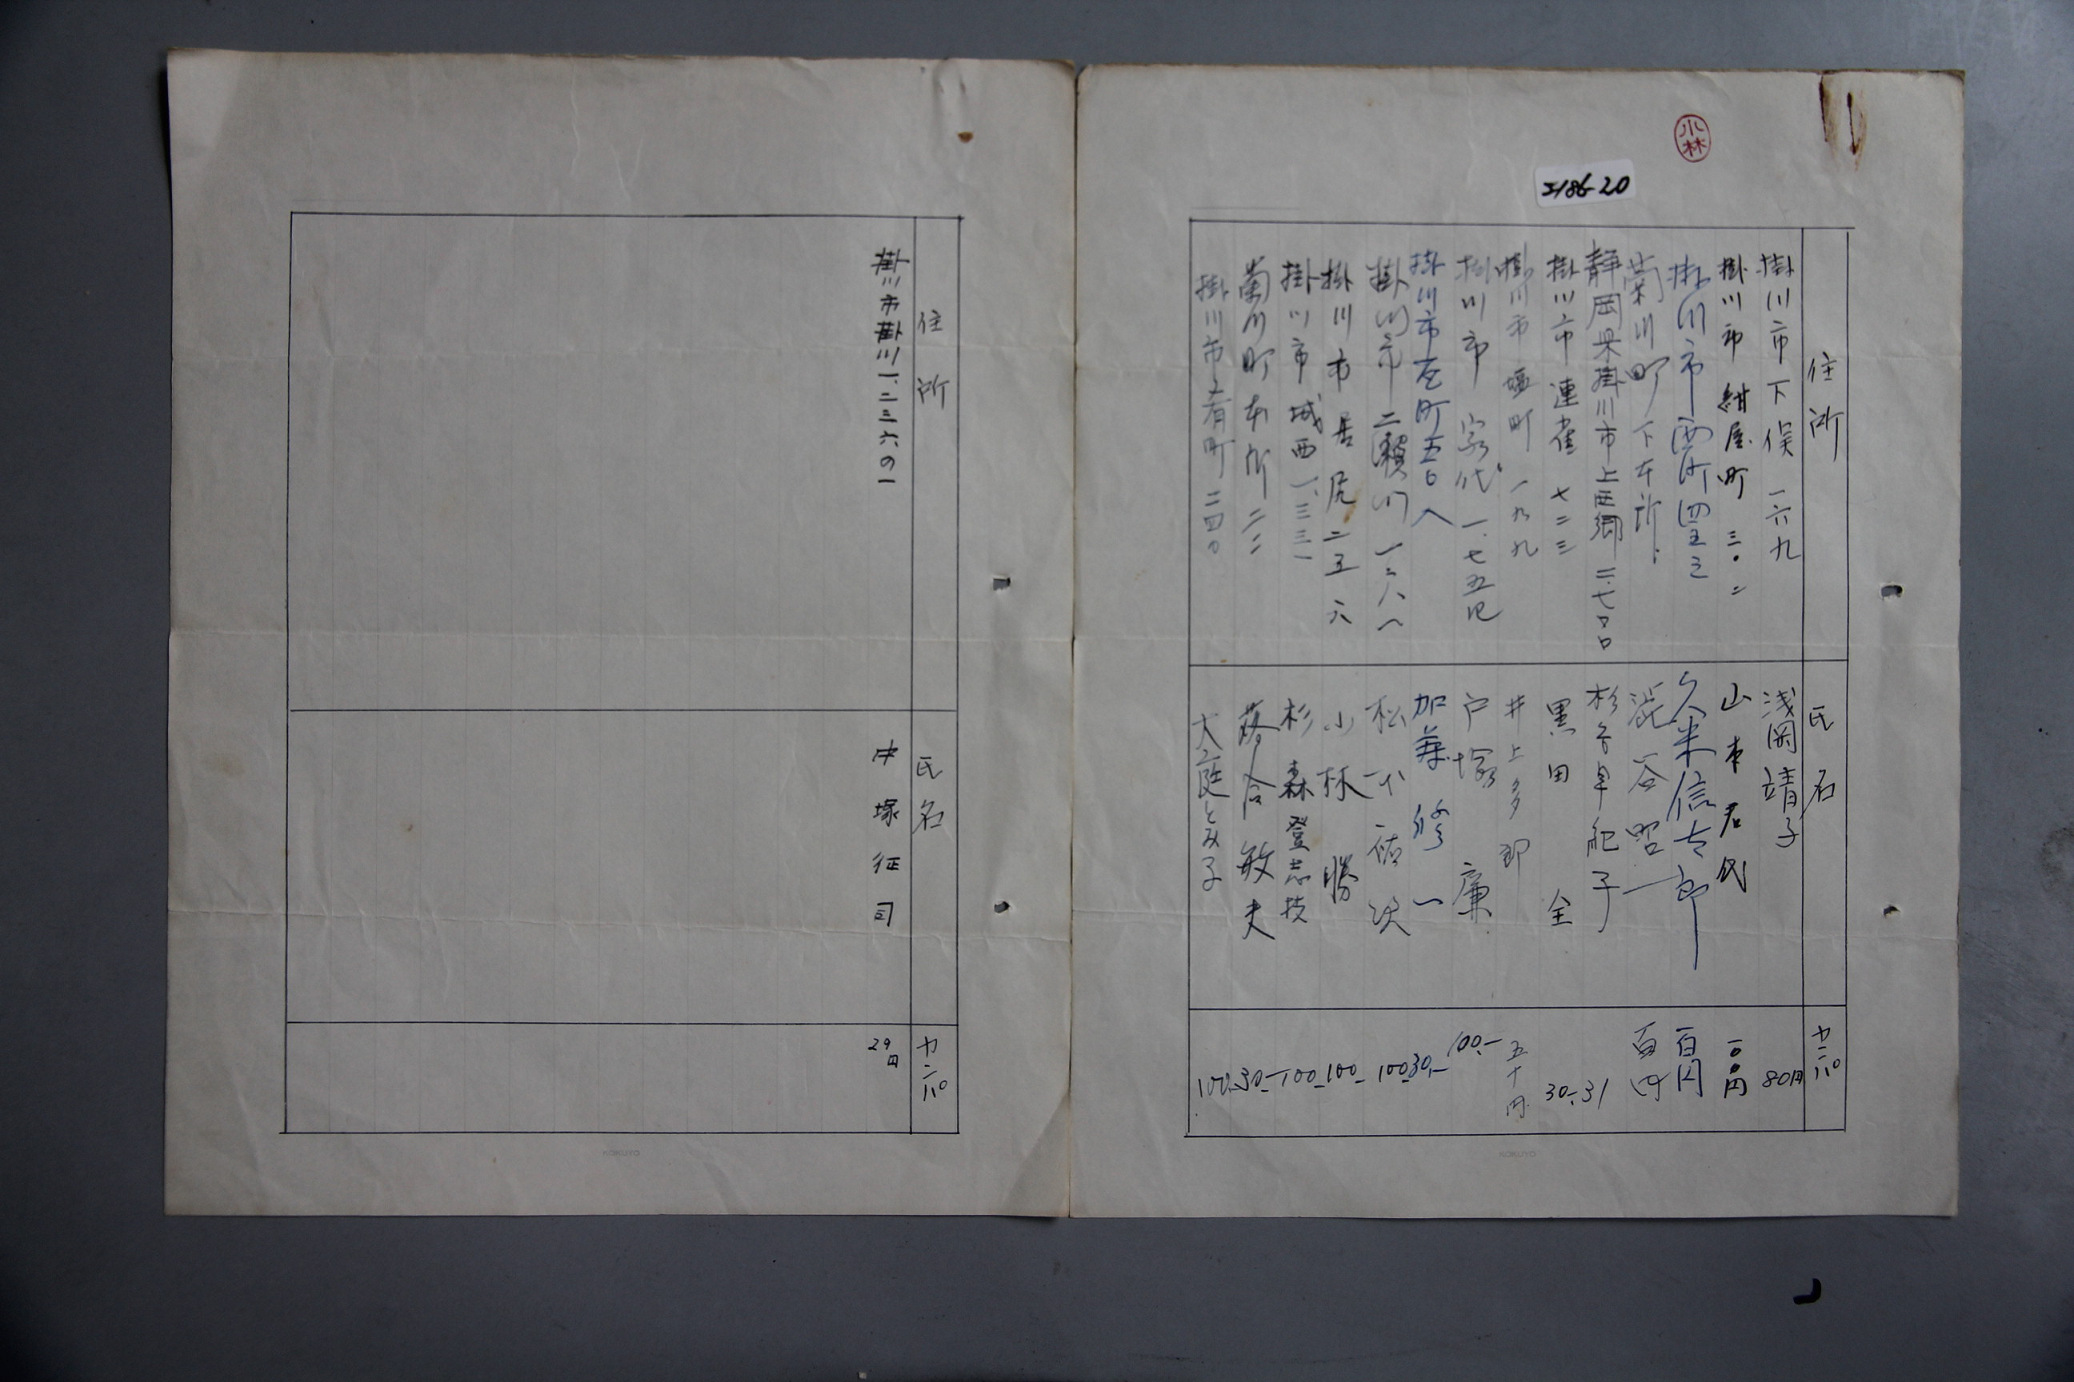 小林
I186-20
住所
氏名
カンパ
掛川市下俣 一六九
浅岡靖子
80円
掛川市紺屋町 三〇二
山本君代
一〇〇円
掛川市西町
久米信太郎
百円
菊川町下本所
渥谷昭一
百円
静岡県掛川市上西郷 二七〇〇
紀子
31
掛川市連雀 七二三
黒田 全
30.-
掛川市塩町 一九九
井上多郎
五十円
掛川市 家代 一、七五四
戸塚 廉
100.-
掛川市
加藤 修一
30.-
掛川市二瀬川 一三八
松下 祐次
100
掛川市居尻二五六
小林 勝
100-
掛川市城西一、三三一
杉森登志枝
100-
菊川町本所二二
落合敏夫
30-
掛川市肴町二四〇
大庭とみ子
100
KOKUYO
住所
氏名
カンパ
掛川市掛川一、二三六の一
中塚征司
29円
KOKUYO